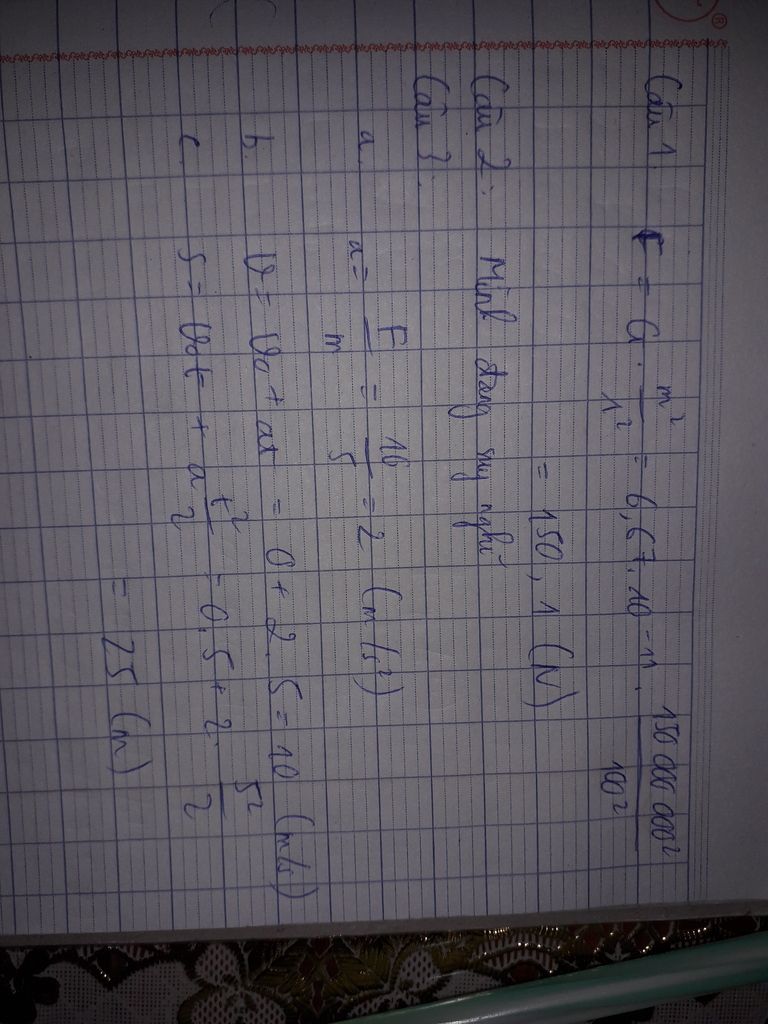 Câu 1.
F = G . m² / r² = 6,67.10 -11 . 150 000 000² / 100²
= 150,1 (N)
Câu 2: Mình đang suy nghĩ
Câu 3:
a. a = F / m = 10 / 5 = 2 (m/s²)
b. v = v0 + at = 0 + 2.5 = 10 (m/s)
c. S = v0t + a t² / 2 = 0.5 + 2. 5² / 2
= 25 (m)